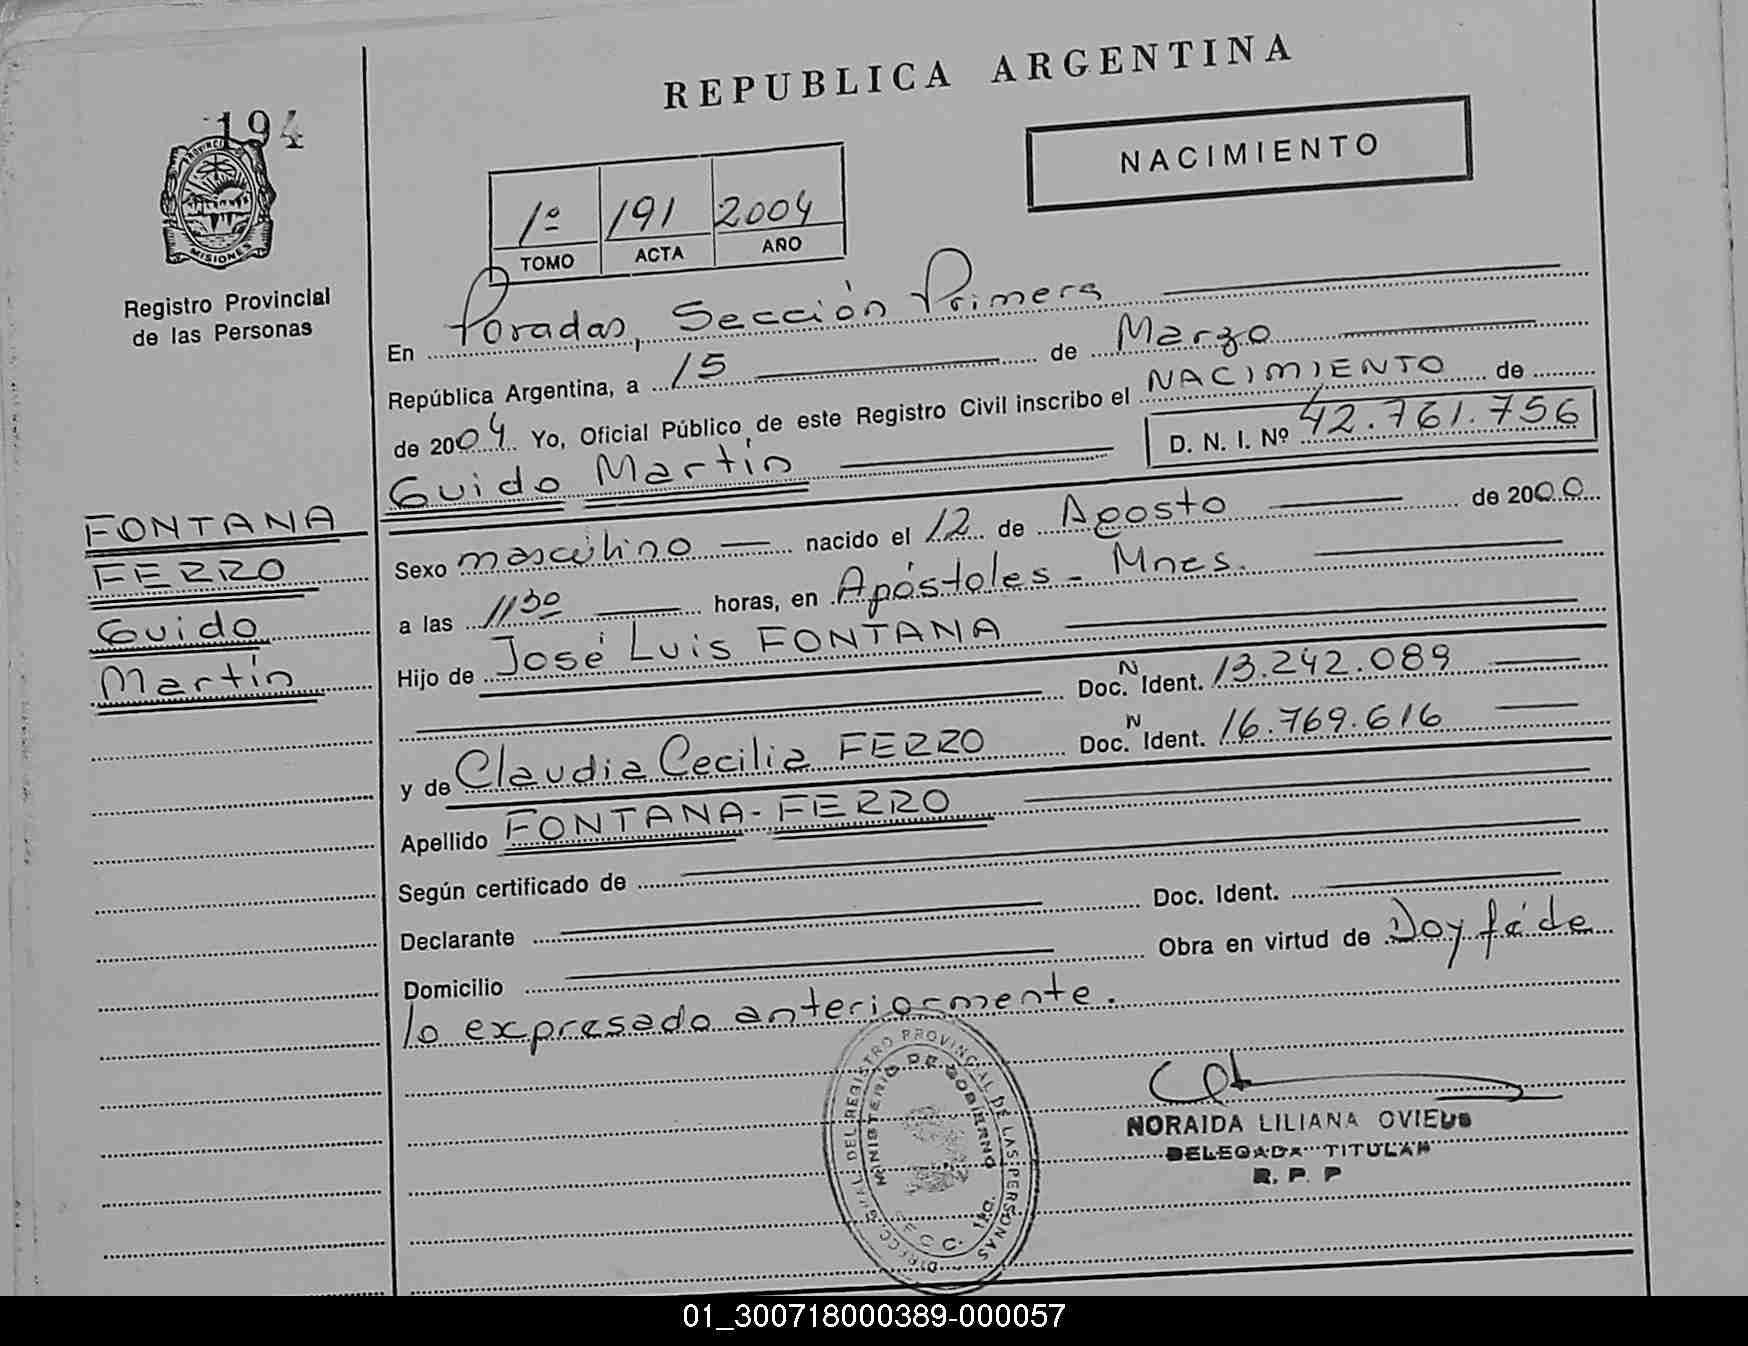 REPUBLICA ARGENTINA
194
PROVINCIA DE
MISIONES
NACIMIENTO
1º 191 2004
TOMO ACTA AÑO
Registro Provincial
de las Personas
En Posadas, Sección Primera
República Argentina, a 15 de Marzo
de 2004 Yo, Oficial Público de este Registro Civil inscribo el NACIMIENTO de
Guido Martín D. N. I. Nº 42.761.756
FONTANA
FERRO
Guido
Martín
Sexo masculino nacido el 12 de Agosto de 2000
a las 1130 horas, en Apóstoles - Mnes.
Hijo de José Luis FONTANA
Doc. N Ident. 13.242.089
y de Claudia Cecilia FERRO Doc. N Ident. 16.769.616
Apellido FONTANA-FERRO
Según certificado de
Declarante Doc. Ident.
Domicilio Obra en virtud de Doy fé de
lo expresado anteriormente.
DIRECC. GRAL. DEL REGISTRO PROVINCIAL DE LAS PERSONAS
MINISTERIO DE GOBIERNO
NORAIDA LILIANA OVIEDO
DELEGADA TITULAR
R. P. P
01_300718000389-000057